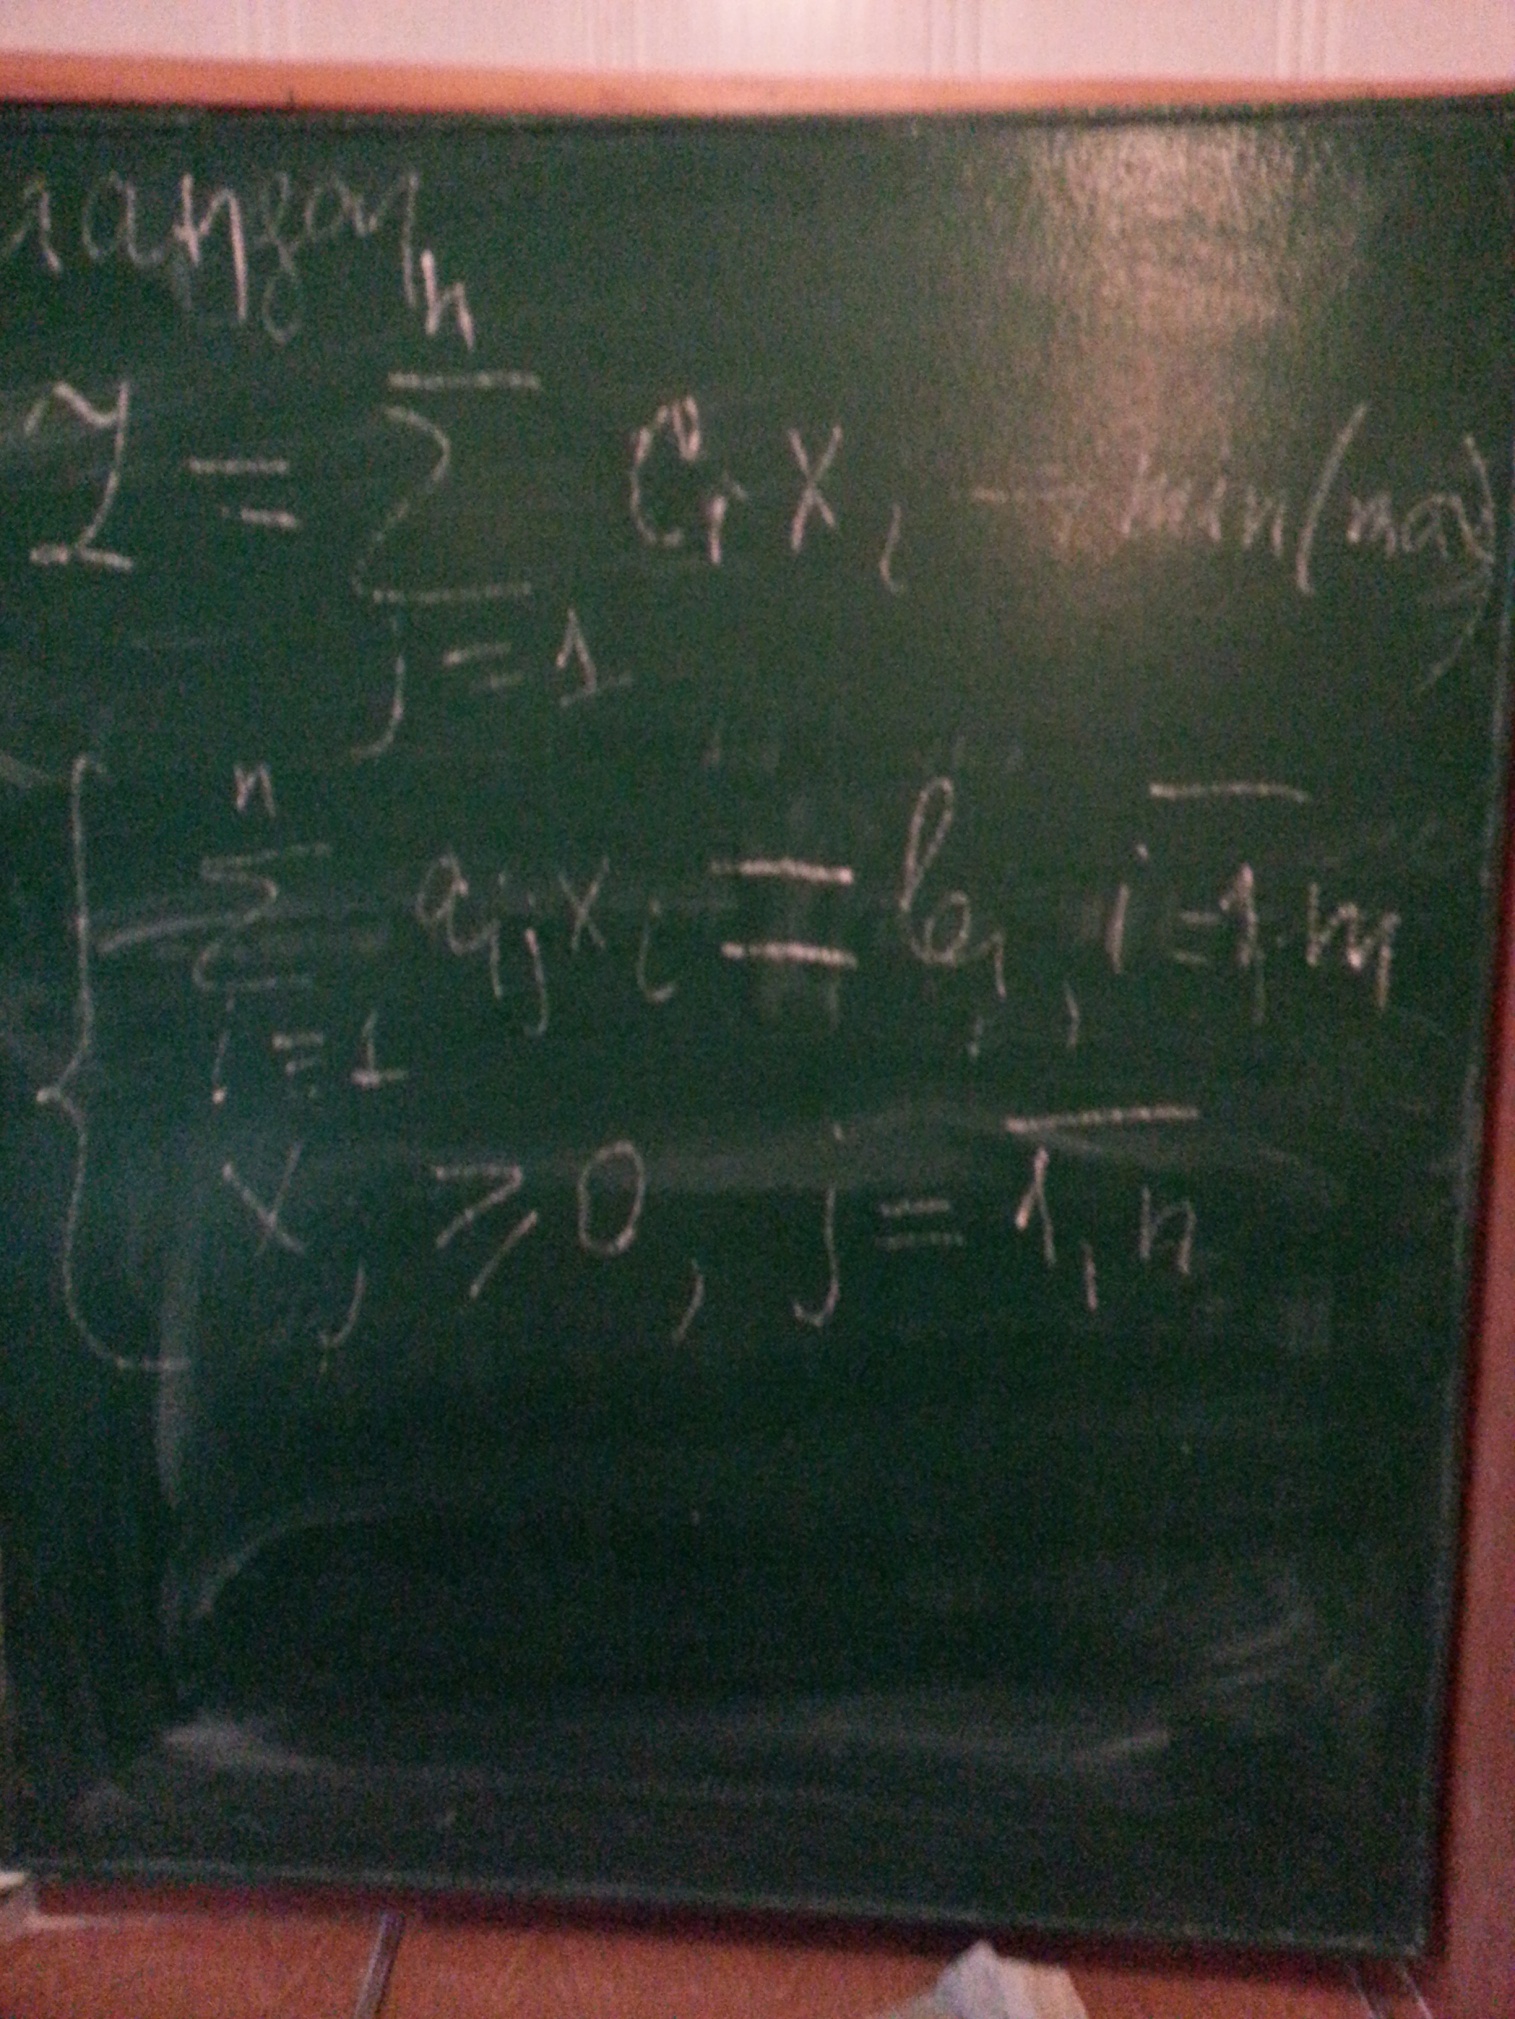 Z = \sum_{j=1}^{n} c_j x_j → min(max)
\sum_{j=1}^{n} a_{ij} x_j = b_i, i = \overline{1, m}
x_j ≥ 0, j = \overline{1, n}